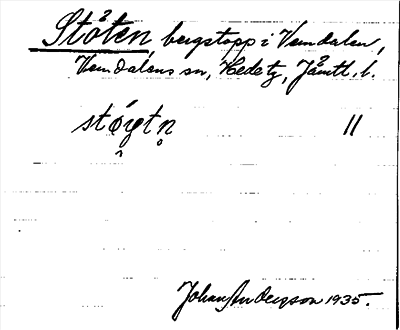 Stöten, bergstopp i Vemdalen,
Vemdalens sn, Hede tg, Jämtl. l.
støytn̥ ||
Johan Anderson 1935.